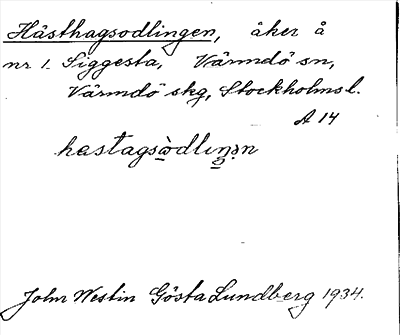 Hästhagsodlingen, åker å
nr 1. Siggesta, Värmdö sn,
Värmdö skg, Stockholms l.
A 14
hastagsòdlıŋən
John Westin Gösta Lundberg 1934.